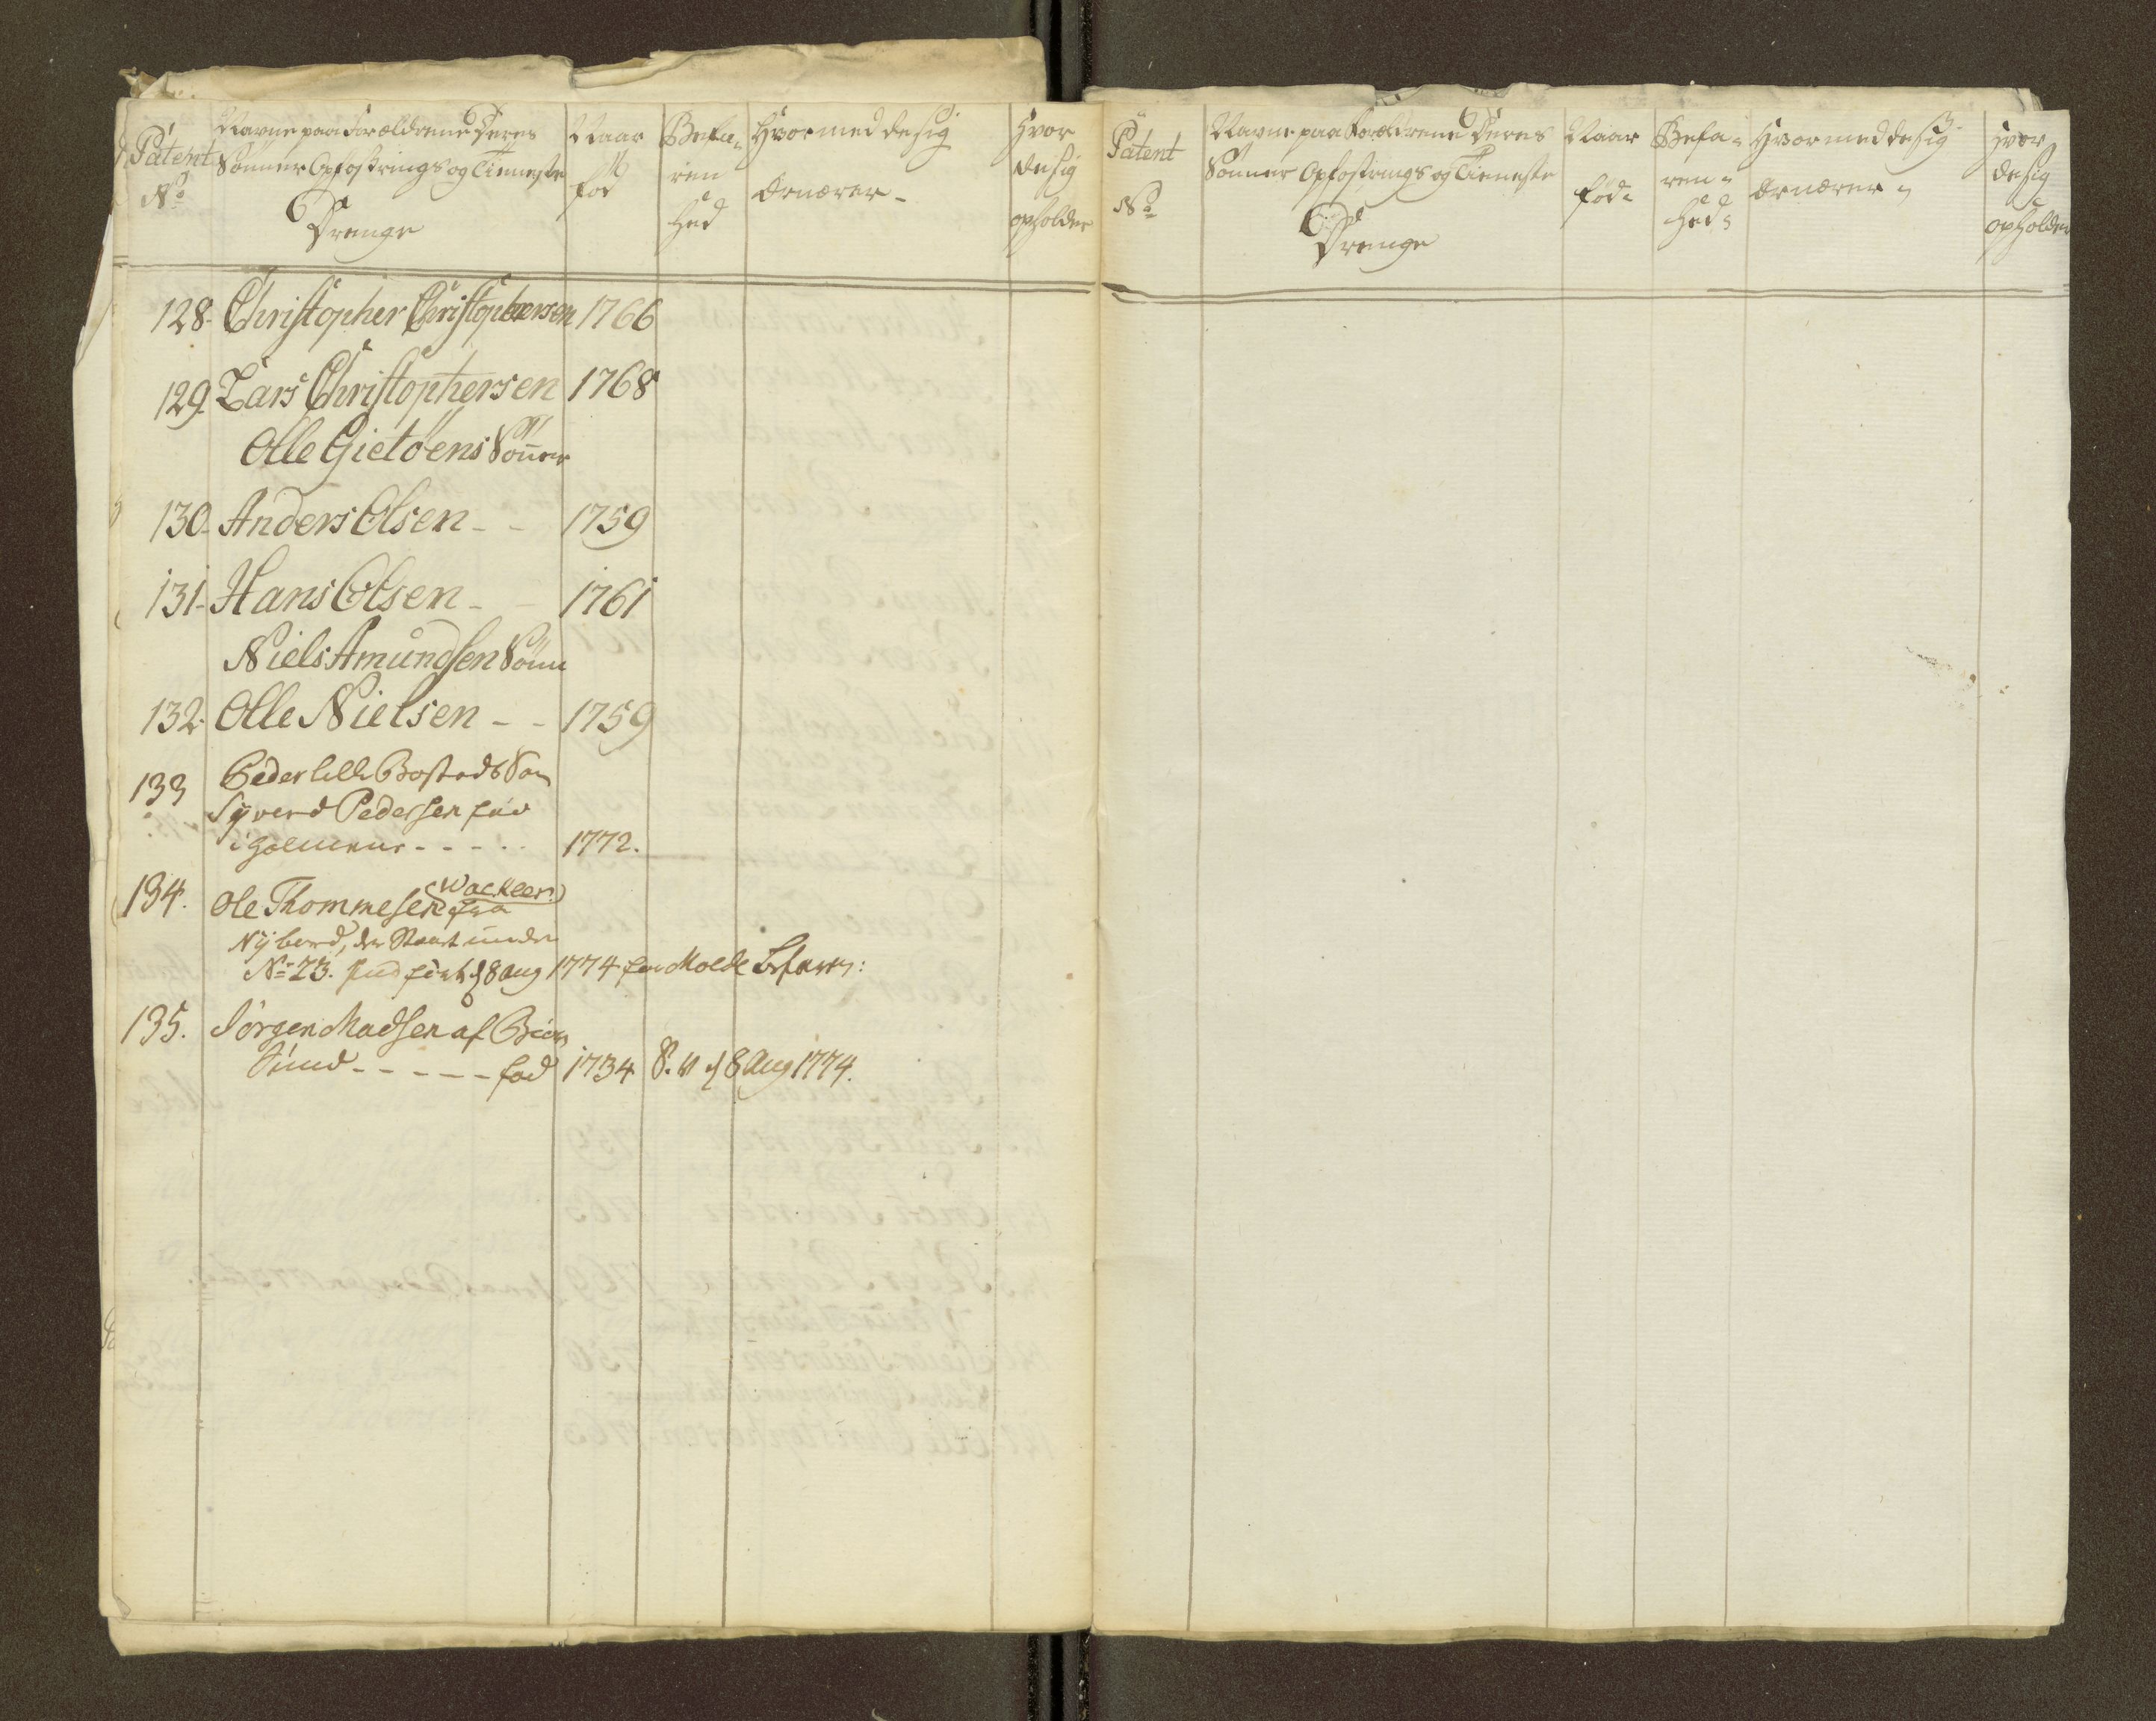 Patent
No
Navne paa Forældrene Deres
Sønner Opfostrings og Tieneste
Drenge
Naar
fød
Befa-
ren
hed
Hvormed de sig
Ernærer -
Hvor
de sig
opholder
128. Christopher Christophersen 1766
129. Lars Christophersen 1768
Olle Gietøens Sönner
130. Anders Olsen - - 1759
131. Hans Olsen - - 1761
Niels Amundsen Sönn
132. Olle Nielsen - - 1759
133 Peder Lille Bostads Søn
Syverd Pedersen fød
i Holmene - - - - - 1772.
134. Ole Thommesen (Wacker) fra
Nybord, der Staaet under
No 23. ind ført d 8 Aug 1774 fra Molde
135. Jørgen Madsen af Biørn
Sund - - - - - fød 1734 d 8 Aug 1774.
Patent
No
Navne paa Forældrene Deres
Sønner Opfostrings og Tieneste
Drenge
Naar
fød
Befa-
ren-
hed
Hvormed de sig
Ernærer
Hvor
de sig
opholder